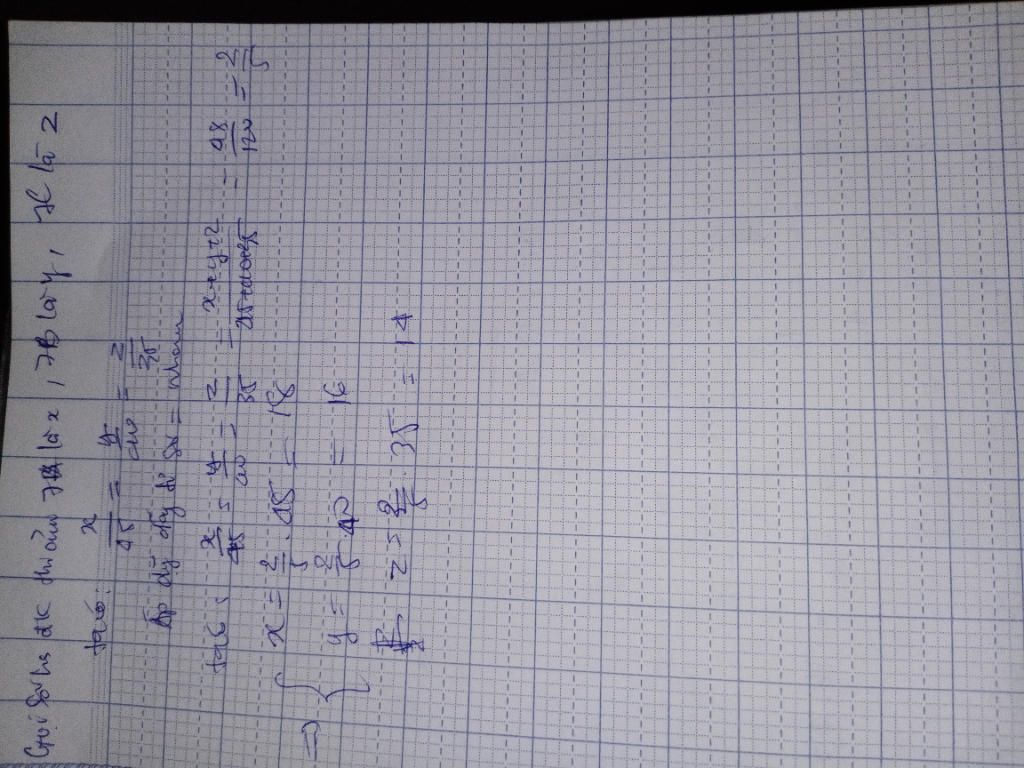 Gọi số hs đc thưởng 7A là x, 7B là y, 7C là z
ta có:
x/45 = y/40 = z/35
Áp dụ dãy tỉ số = nhau
ta có: x/45 = y/40 = z/35 = x+y+z/45+40+35 = 48/120 = 2/5
⇒ { x = 2/5 . 45 = 18
y = 2/5 . 40 = 16
z = 2/5 . 35 = 14